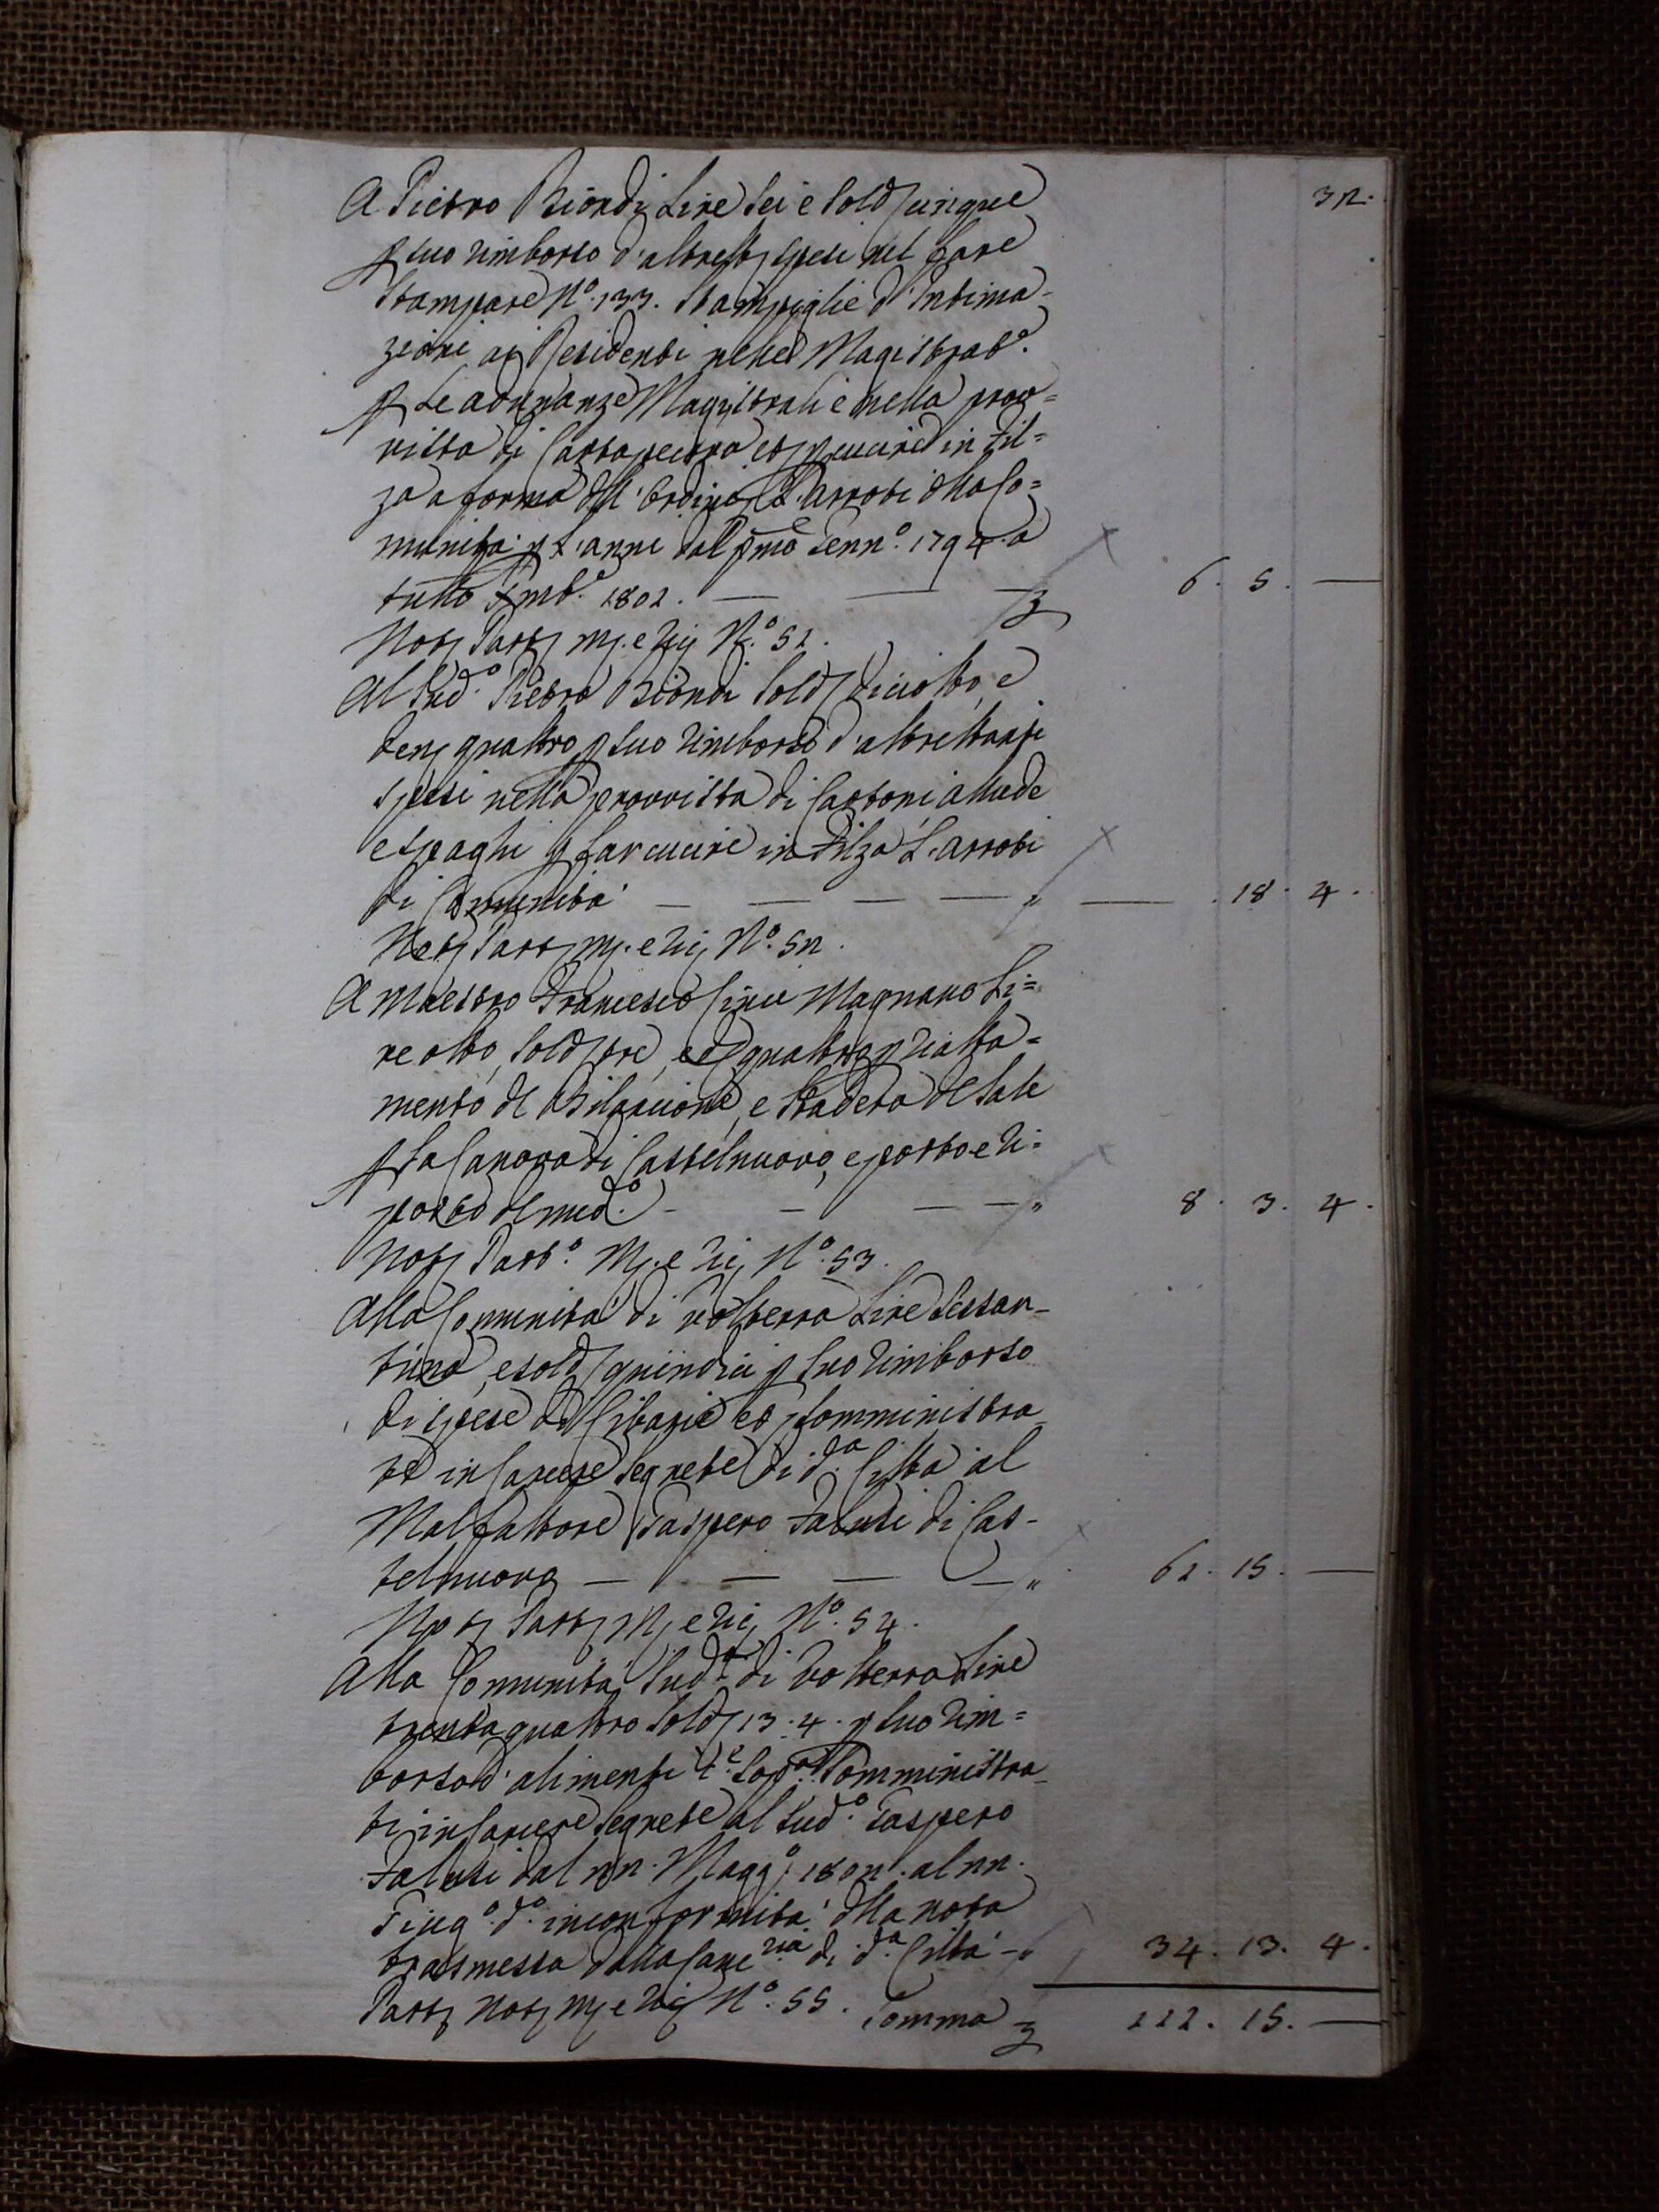 32.
A Pietro Biondi Lire Sei e Sold cinque
p suo rimborso d'altrett spesi nel fare
Stampare N.º 133. Stampiglie d'Intima-
zioni ai Residenti nelled Magistrat.º
p Le adunanze Magistrali e nella prov=
vista di Cartapecora et p cucire in Fil=
za a forma dell'Ordine L'Arroti della Co=
munità p anni dal pmo Genn.º 1794. a
tutto Xmb.e 1801. — — — 6. 5. —
Not Part Mj. e Rig N.º 51.
Al Sud.º Pietro Biondi Sold diciotto, e
den quattro p suo rimborso d'altrettanti
spesi nella provvista di Cartoni, allude
e Spaghi p far cucire in Filza L'Arroti
di Comunità — — — — " — . 18. 4.
Not Part Mj. e Rig N.º 52.
A Maestro Francesco Cinci Magnano Li=
re otto, Sold tre, e d quattro p riatta=
mento del Bilancione, e Stadera del Sale
p la Canova di Castelnuovo, e porto e ri=
porto del med.º - — — — " 8. 3. 4.
Not Part.º Mj. e Rig N.º 53.
Alla Comunità di Volterra Lire Sessan-
tuna, e sold quindici p suo rimborso
di spese del Cibarie et p somministra-
te in Carcere Segrete di d.a Città al
Malfattore Gaspero Falusi di Cas-
telnuovo — — — — " 61. 15. —
Not Part Mj e Rig N.º 54.
Alla Comunità Sud.a di Volterra Lire
trentaquattro Sold 13. 4. p suo rim=
borso d'alimenti Somministra-
ti in Carcere Segrete al Sud.º Gaspero
Falusi dal 22. Magg.º 1802. al 22.
Giug.º d.º in conformità della nota
trasmessa dalla Canc.ria di d.a Città — " 34. 13. 4.
Part Not Mj e Rig N.º 55. Somma 111. 15. —